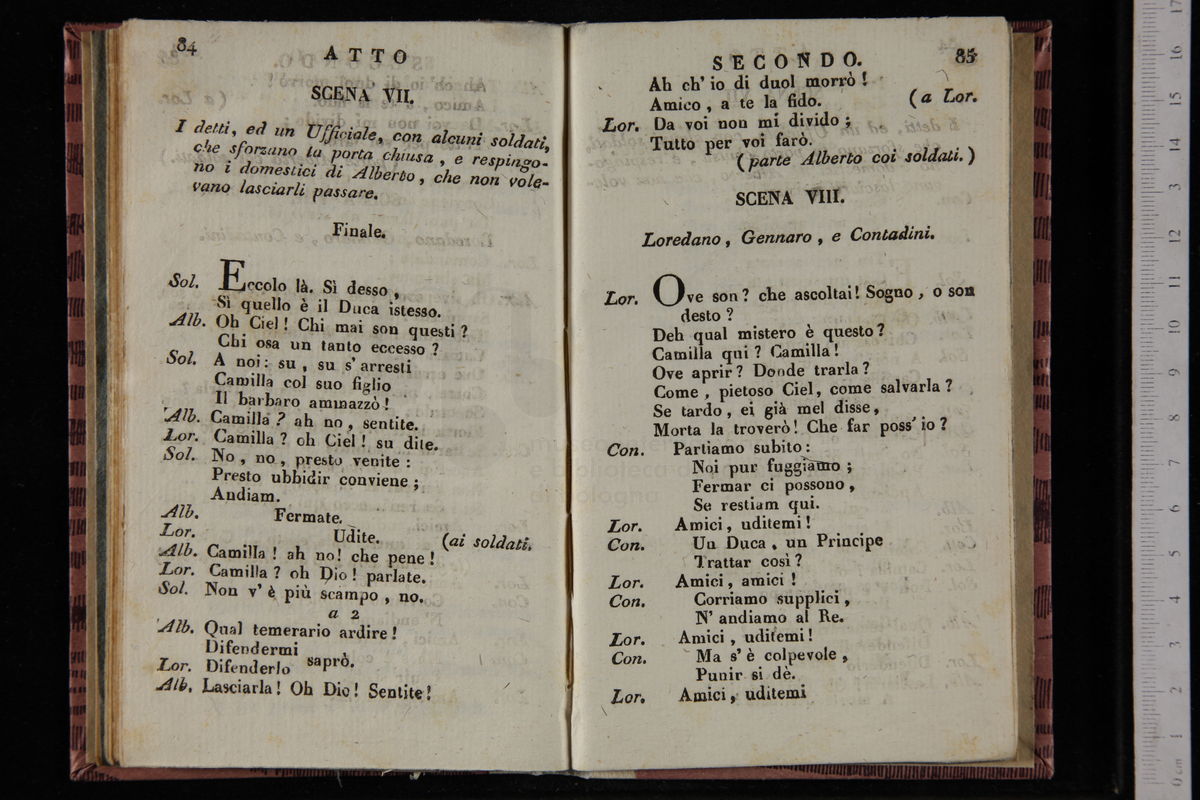 84
ATTO
SCENA VII.
I detti, ed un Ufficiale, con alcuni soldati,
che sforzano la porta chiusa, e respingo-
no i domestici di Alberto, che non vole-
vano lasciarli passare.
Finale.
Sol. Eccolo là. Sì desso,
Sì quello è il Duca istesso.
Alb. Oh Ciel! Chi mai son questi?
Chi osa un tanto eccesso?
Sol. A noi: su, su s'arresti
Camilla col suo figlio
Il barbaro ammazzò!
Alb. Camilla? ah no, sentite.
Lor. Camilla? oh Ciel! su dite.
Sol. No, no, presto venite:
Presto ubbidir conviene;
Andiam.
Alb. Fermate.
Lor. Udite. (ai soldati.
Alb. Camilla! ah no! che pene!
Lor. Camilla? oh Dio! parlate.
Sol. Non v'è più scampo, no.
a 2
Alb. Qual temerario ardire!
Difendermi
Lor. Difenderlo saprò.
Alb. Lasciarla! Oh Dio! Sentite!
SECONDO. 85
Ah ch'io di duol morrò!
Amico, a te la fido. (a Lor.
Lor. Da voi non mi divido;
Tutto per voi farò.
(parte Alberto coi soldati.)
SCENA VIII.
Loredano, Gennaro, e Contadini.
Lor. Ove son? che ascoltai! Sogno, o son
desto?
Deh qual mistero è questo?
Camilla qui? Camilla!
Ove aprir? Donde trarla?
Come, pietoso Ciel, come salvarla?
Se tardo, ei già mel disse,
Morta la troverò! Che far poss'io?
Con. Partiamo subito:
Noi pur fuggiamo;
Fermar ci possono,
Se restiam qui.
Lor. Amici, uditemi!
Con. Un Duca, un Principe
Trattar così?
Lor. Amici, amici!
Con. Corriamo supplici,
N'andiamo al Re.
Lor. Amici, uditemi!
Con. Ma s'è colpevole,
Punir si dè.
Lor. Amici, uditemi
museo
biblioteca
di bologna
0 cm 1 2 3 4 5 6 7 8 9 10 11 12 13 14 15 16 17